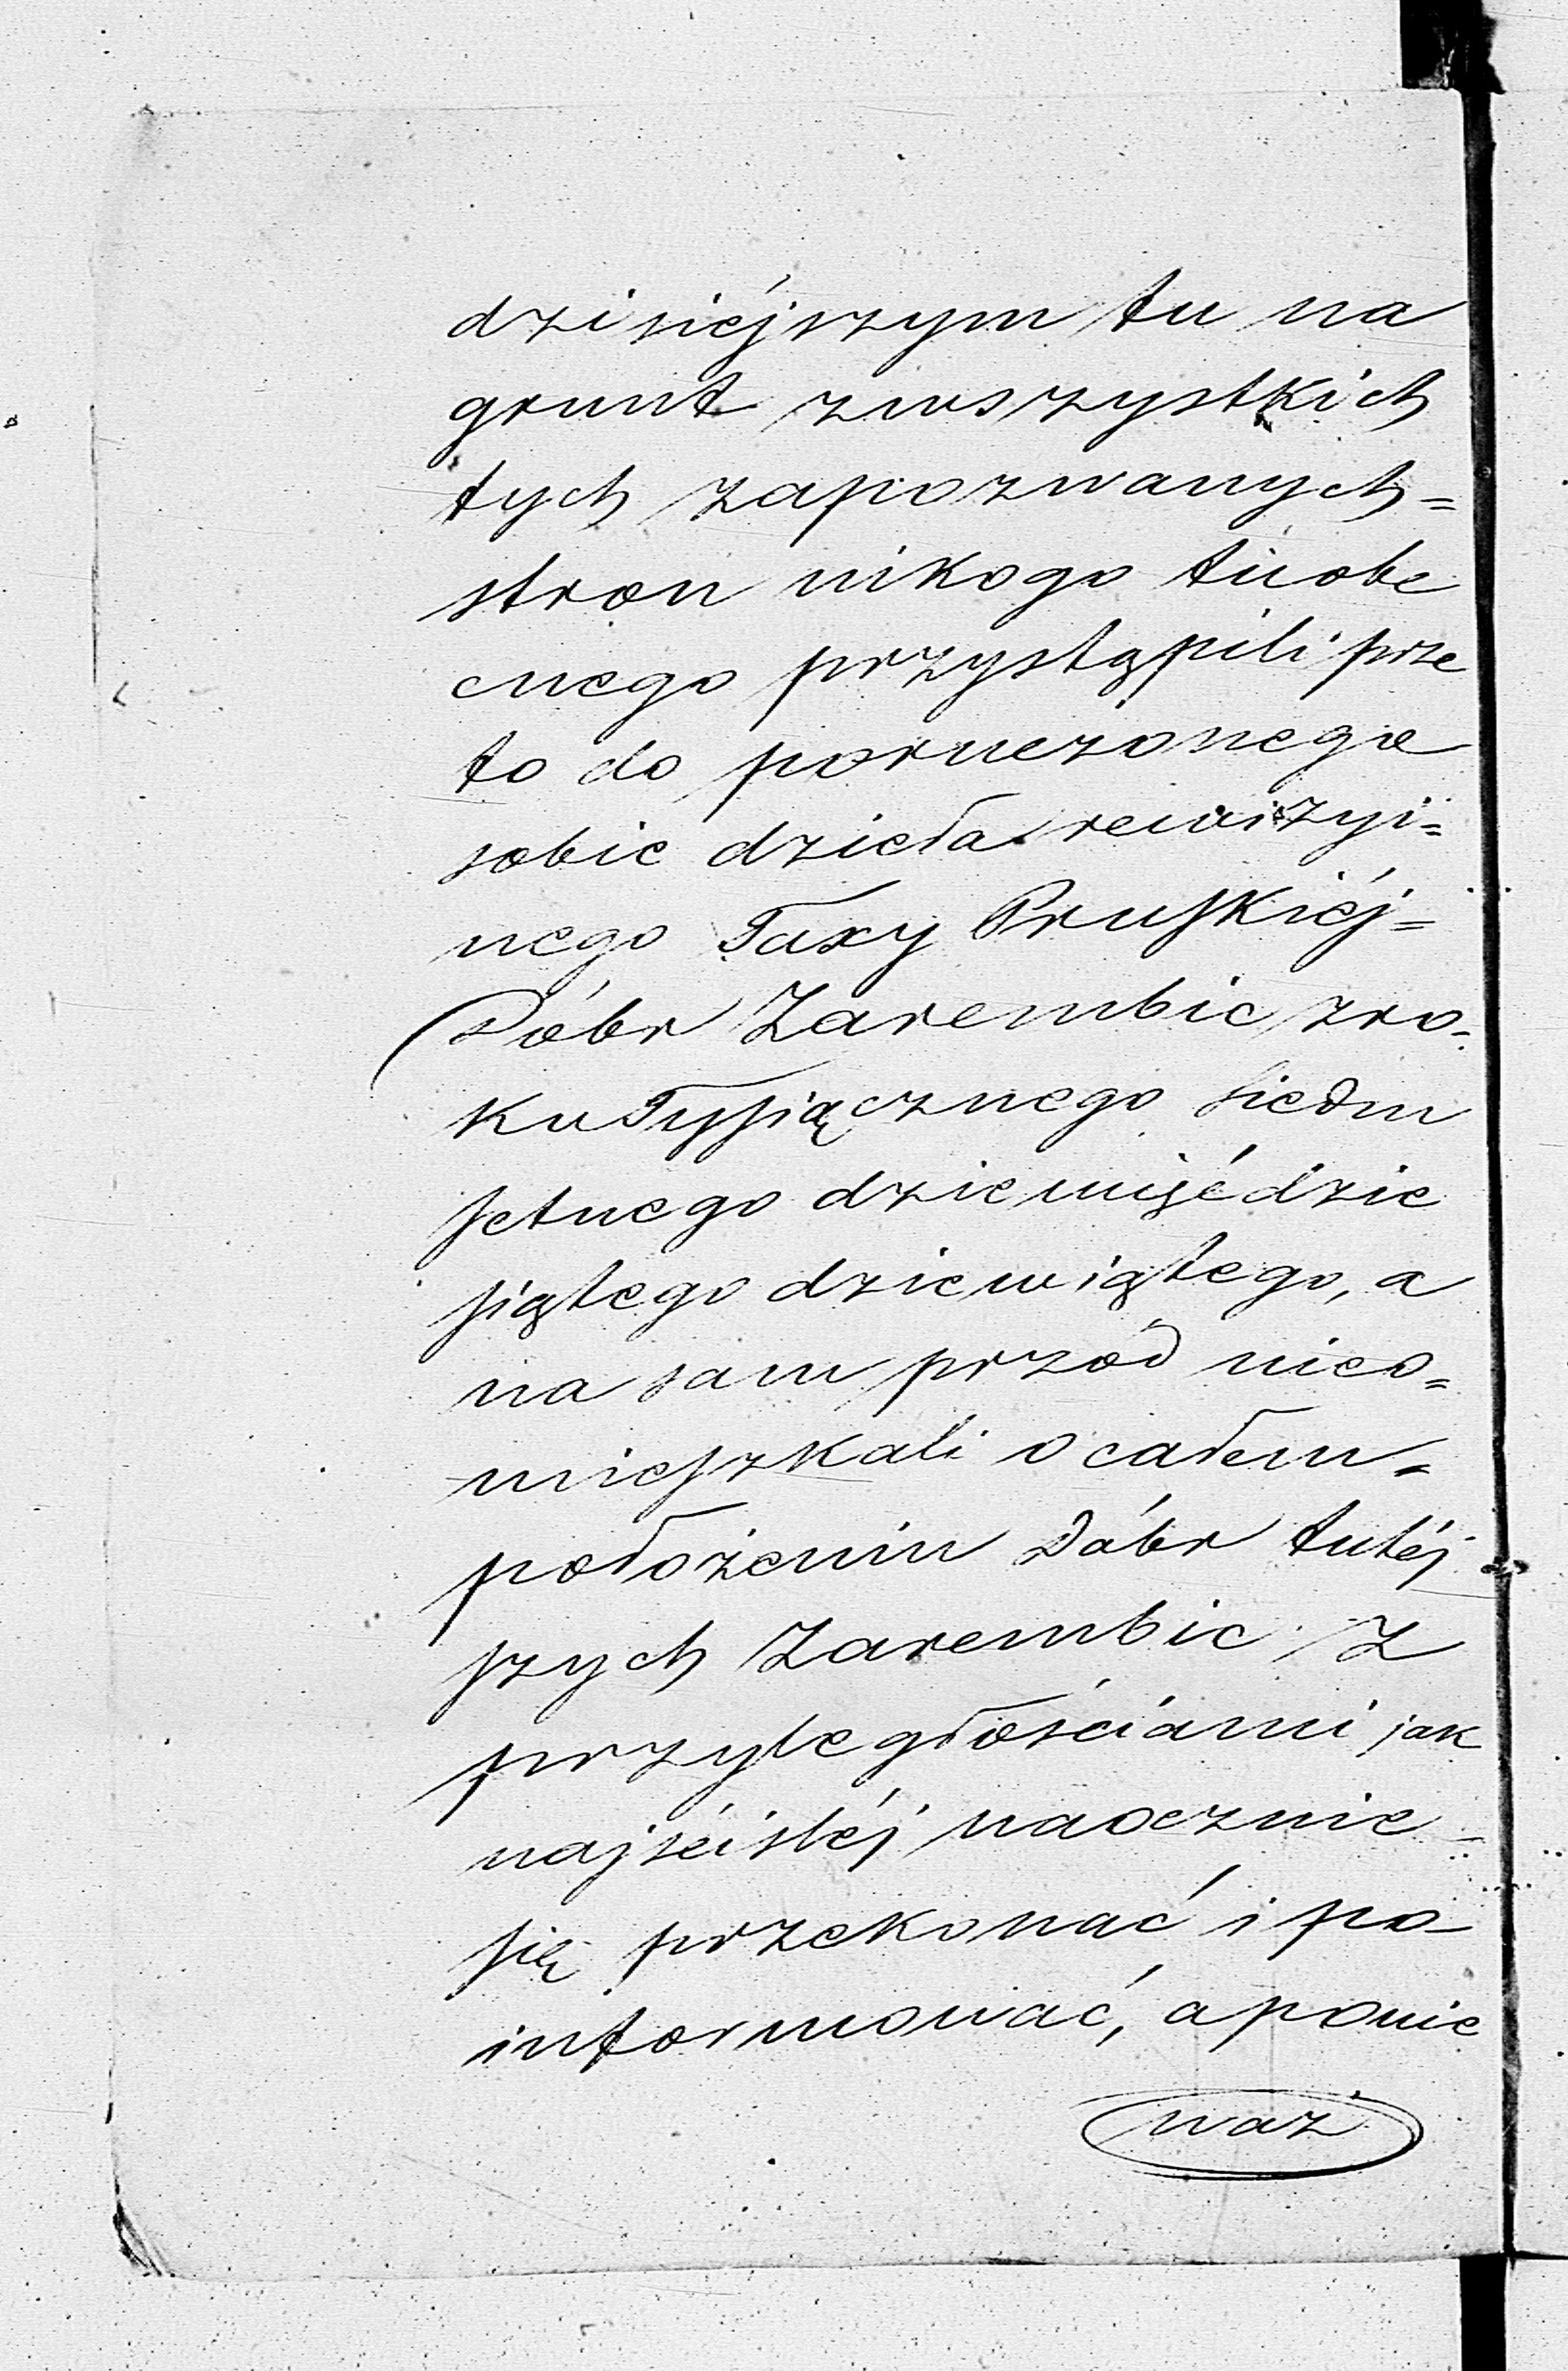 dzisiéjszym tu na
grunt zwszystkich
tych zapozwanych=
stron nikogo tu obe
cnego przystąpili prze
to do poruczonego
sobie dzieła rewizyi=
nego Taxy Pruskiéj=
Dóbr Zarembic zro=
ku Tysiącznego siedm
setnego dziewięćdzie
siątego dziewiątego, a
na sam przód nieo=
mieszkali o całem=
położeniu Dóbr tutéj
szych Zarembic z
przyległościami jak
najściśléj naocznie
się przekonać i po
informować, a ponie
waż